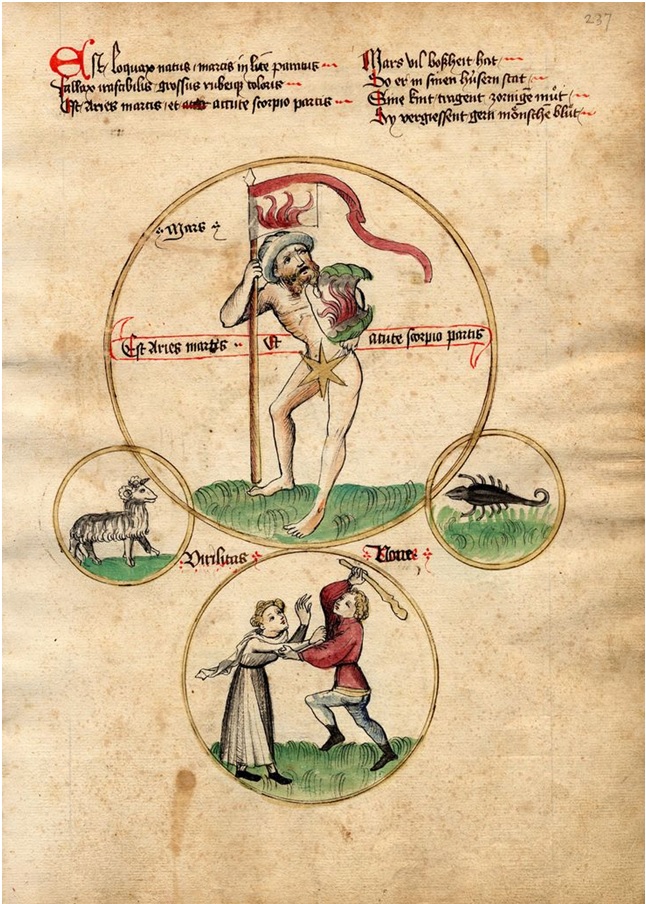 237
Est loquax natus martis in lite paratus
Fallax instabilis grossus rubeique coloris
Est Aries martis et acute scorpio partis
Mars vil boßheit hat
So er in sinen hüsern stat
Sine kint tragent zornige müt
Sy vergiessent gern mönsche blüt
Mars
Est Aries martis Et acute scorpio partis
Virilitas